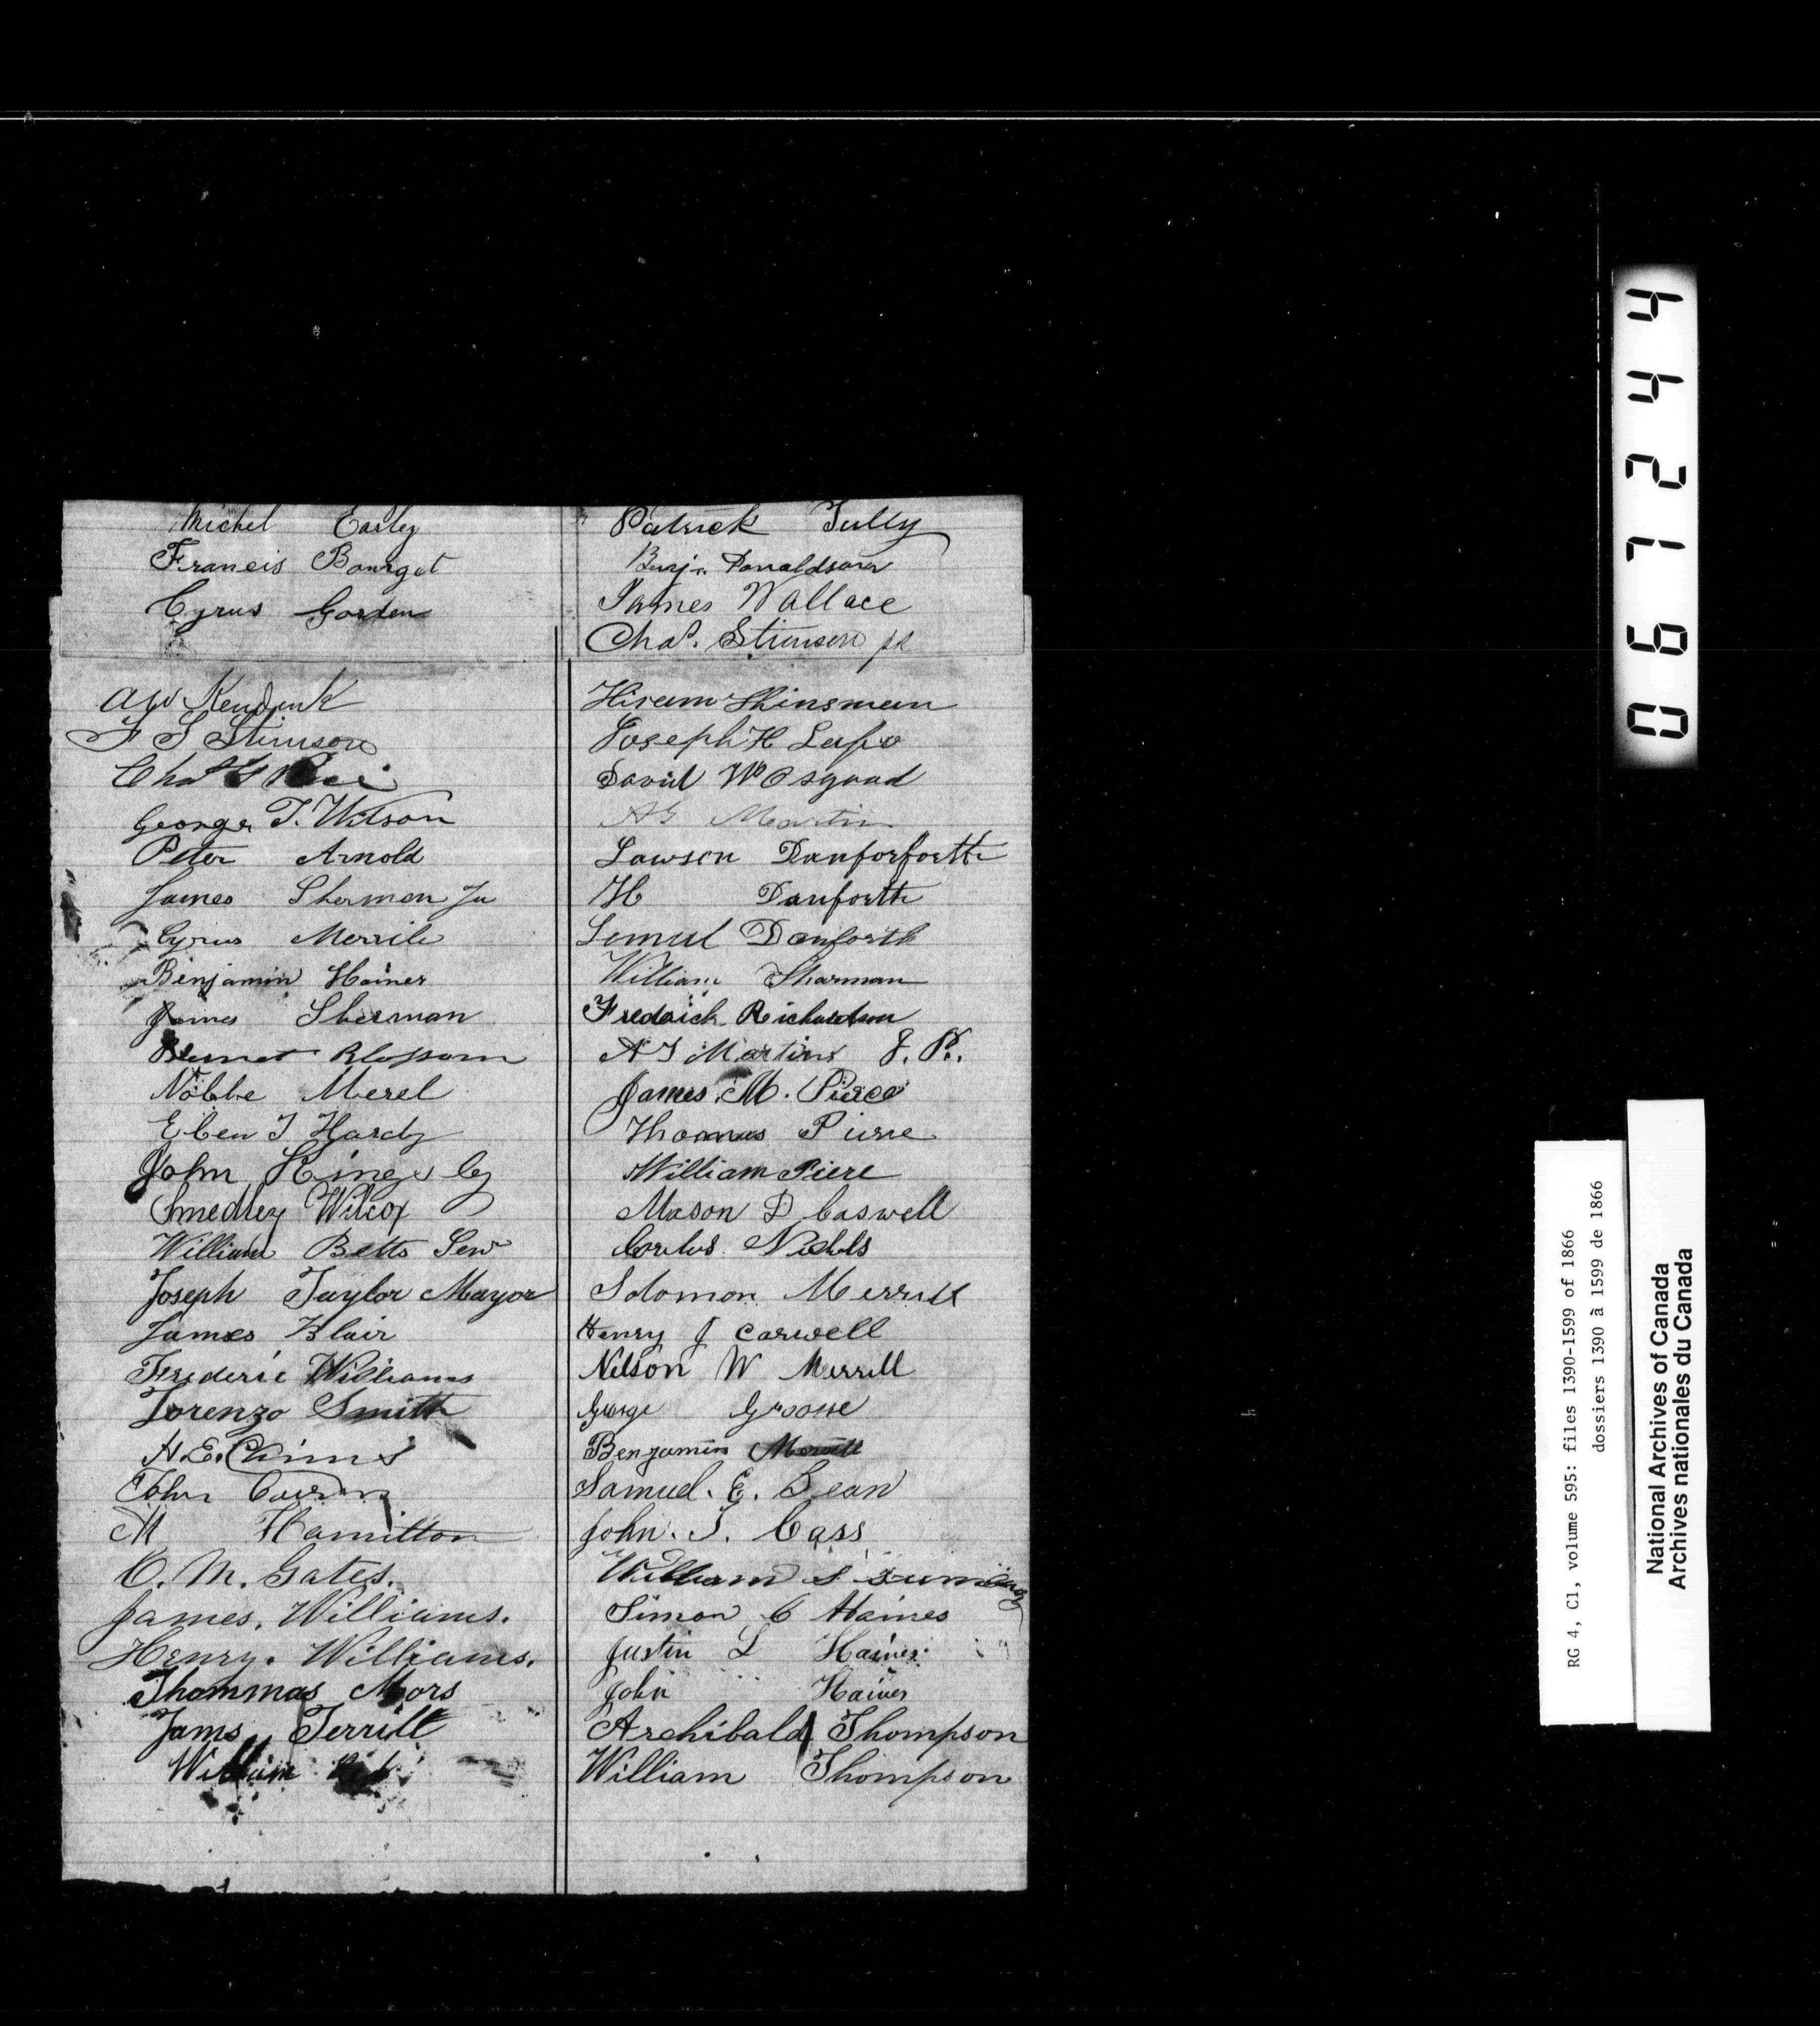 Michel Earley
Francis Bourget
Cyrus Gorden
A W Kendrick
F S Stimson
Chas G
George T. Wilson
Peter Arnold
James Sherman Ju
Cyrus Merrile
Benjamin Hainer
James Sherman
Blossom
Nobbe Merel
Eben T Hardy
John Kingsley
Smedley Wilcox
William Betts Sen
Joseph Taylor Mayor
James Blair
Frederic Williams
Lorenzo Smith
H. E.
John
M Hamilton
O. M. Gates.
James. Williams.
Henry. Williams.
Thommas Mors
Jams Terrill
William
Patrick Tully
Benj. Donaldson
James Wallace
Chas. Stimson
Hiram Hinsman
Joseph H
David W Osgood
A G Martin
Lawson Danforforth
H Danforth
Lemuel Danforth
William Sharman
Fredrick Richardson
A G Martin J. P.
James M. Pierce
Thomas Pierre
William Piere
Mason D Caswell
Nichols
Solomon Merrill
Henry J Carwell
Nelson W Merrill
George Groose
Benjamin Merrill
Samuel. E. Bean
John. T. Cass
William S
Simon C Haines
Justin L Haines
John Haines
Archibald Thompson
William Thompson
067244
RG 4, C1, volume 595: files 1390-1599 of 1866
dossiers 1390 à 1599 de 1866
National Archives of Canada
Archives nationales du Canada